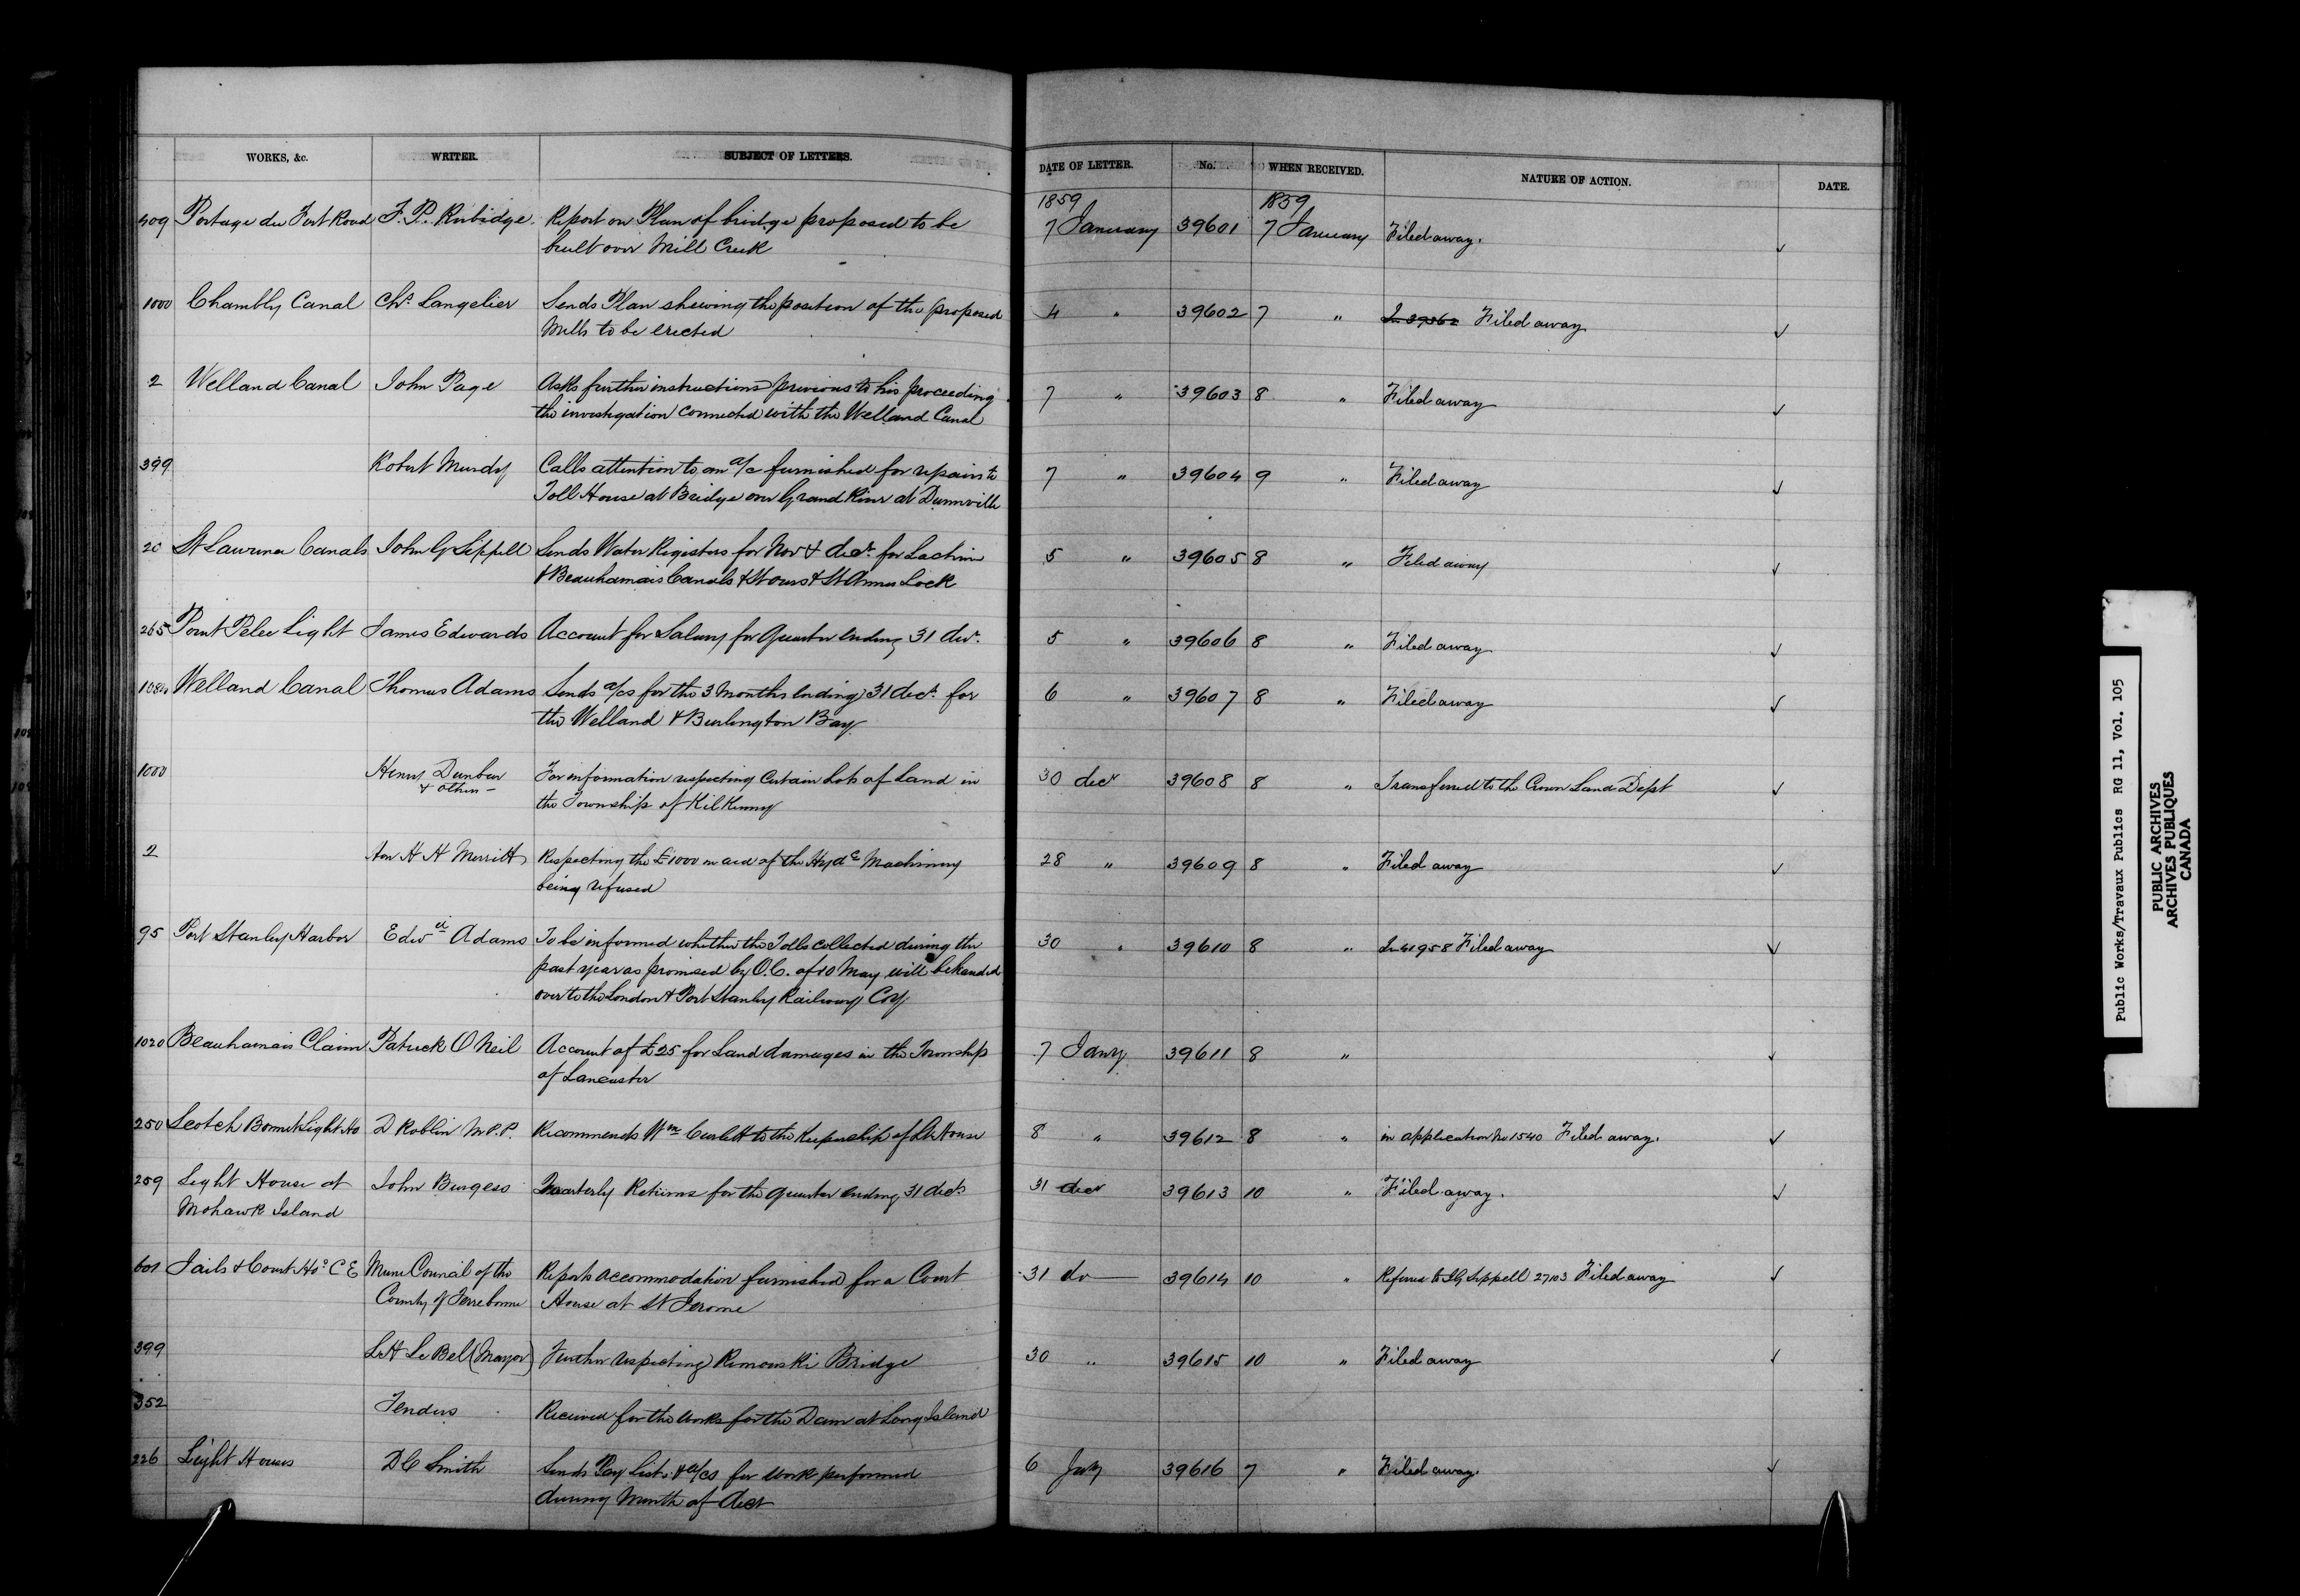 WORKS, &c. WRITER. SUBJECT OF LETTERS. DATE OF LETTER. No. WHEN RECEIVED. NATURE OF ACTION. DATE.
1859 1859
409 Portage du Fort Road F. P. Rubidge. Report on Plan of bridge proposed to be 7 January 39601 7 January Filed away. ✓
built over Mill Creek
1000 Chambly Canal Chs. Langelier Sends Plan shewing the position of the proposed 4 " 39602 7 " Filed away ✓
Mills to be erected
2 Welland Canal John Page Asks further instructions previous to his proceeding 7 " 39603 8 " Filed away ✓
the investigation connected with the Welland Canal
399 Robert Mundy Calls attention to an a/c furnished for repairs to 7 " 39604 9 " Filed away ✓
Toll House at Bridge over Grand River at Dunnville
20 St Lawrence Canals John G Sippell Sends Water Registers for Nov & decr. for Lachine 5 " 39605 8 " Filed away ✓
& Beauharnais Canals & St Ours & St Annes Lock
265 Point Pelee Light James Edwards Account for Salary for Quarter ending 31 decr. 5 " 39606 8 " Filed away ✓
Welland Canal Thomas Adams Sends a/cs for the 3 Months ending 31 decr. for 6 " 39607 8 " Filed away ✓
the Welland & Burlington Bay
1000 Henry Dunbar For information respecting Certain Lots of Land in 30 decr 39608 8 " Transferred to the Crown Land Dept ✓
& others — the Township of Kilkenny
2 Hon H H Merritt Respecting the £1000 in aid of the Hydc Machinery 28 " 39609 8 " Filed away ✓
being refused
95 Port Stanley Harbor Edwd Adams To be informed whether the Tolls collected during the 30 " 39610 8 " In 41958 Filed away ✓
past year as promised by O.C. of 10 May will be handed
over to the London & Port Stanley Railway Coy
1020 Beauharnais Claim Patrick O Neil Account of £25 for Land damages in the Township 7 Jany 39611 8 " ✓
of Lancaster
250 Scotch Bonnet Light Ho D Roblin M.P.P. Recommends Wm Corlett to the Keepership of Lt House 8 " 39612 8 " in application No 1540 Filed away. ✓
259 Light House at John Burgess Quarterly Returns for the quarter ending 31 decr 31 decr 39613 10 " Filed away. ✓
Mohawk Island
601 Jails & Court Hos. C E Muni Council of the Reports accommodation furnished for a Court 31 do 39614 10 " Referred to JG Sippell 27103 Filed away ✓
County of Terrebonne House at St Jerome
399 LH Le Bel (Mayor) Further respecting Rimouski Bridge 30 " 39615 10 " Filed away ✓
352 Tenders Received for the works for the Dam at Long Island
226 Light Houses D C Smith Sends Pay Lists & a/cs for work performed 6 Jany 39616 7 " Filed away. ✓
during Month of decr
Public Works/Travaux Publics RG 11, Vol. 105
PUBLIC ARCHIVES
ARCHIVES PUBLIQUES
CANADA